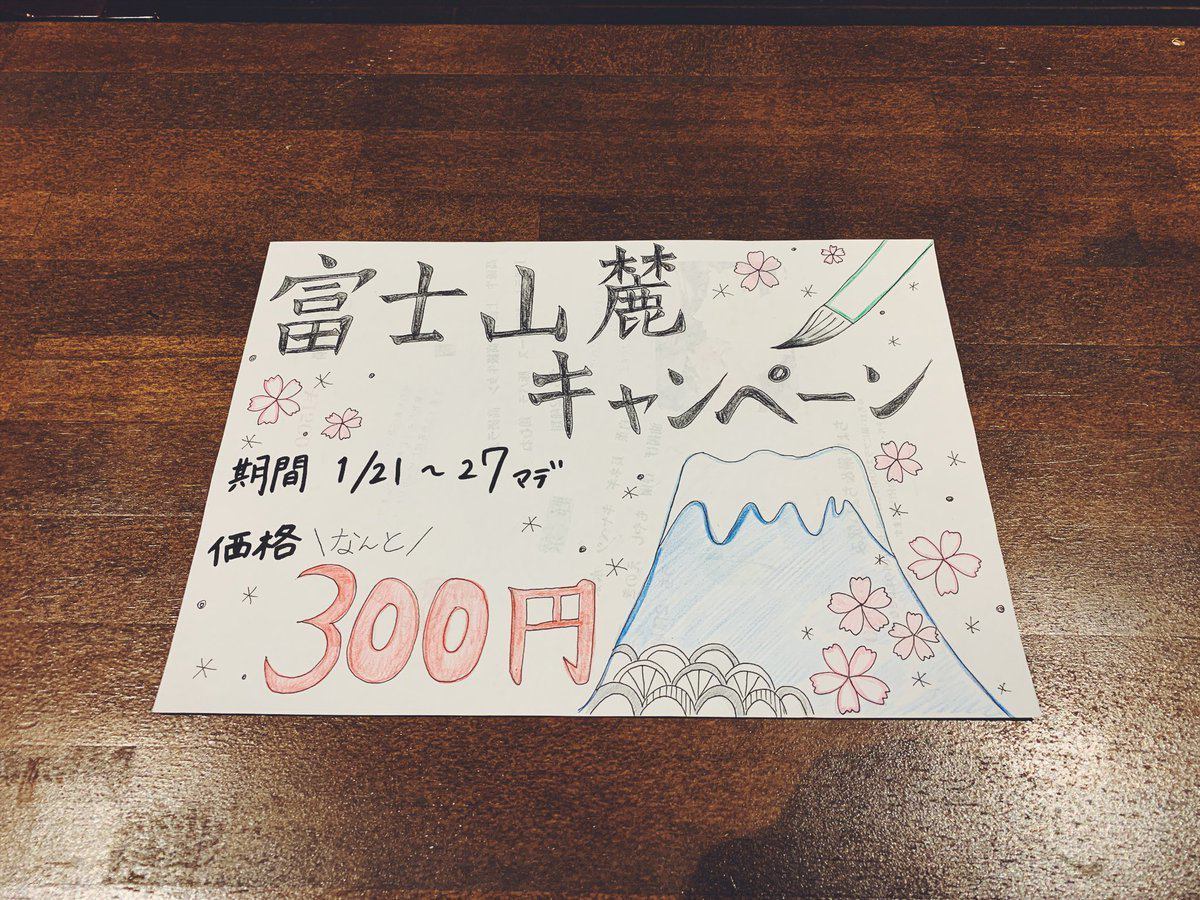 富士山麓
キャンペーン
期間 1/21～27マデ
価格 \なんと/
300円